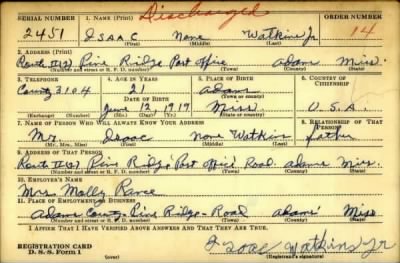 Discharged
SERIAL NUMBER 1. NAME (Print) ORDER NUMBER
2451 ISAAC None Watkins Jr 14
(First) (Middle) (Last)
2. ADDRESS (Print)
Pine Ridge Post Office Adams Miss.
(Number and street or R. F. D. number) (Town) (County) (State)
3. TELEPHONE 4. AGE IN YEARS 5. PLACE OF BIRTH 6. COUNTRY OF CITIZENSHIP
County 3104 21 Adams
DATE OF BIRTH (Town or county)
June 12, 1919 Miss. U.S.A.
(Exchange) (Number) (Mo.) (Day) (Yr.) (State or country)
7. NAME OF PERSON WHO WILL ALWAYS KNOW YOUR ADDRESS 8. RELATIONSHIP OF THAT PERSON
Mr. Isaac None Watkins father
(Mr., Mrs., Miss) (First) (Middle) (Last)
9. ADDRESS OF THAT PERSON
Pine Ridge Post Office Road. Adams Miss.
(Number and street or R. F. D. number) (Town) (County) (State)
10. EMPLOYER'S NAME
Mrs. Molly
11. PLACE OF EMPLOYMENT OR BUSINESS
Adams County- Pine Ridge- Road Adams Miss
(Number and street or R. F. D. number) (Town) (County) (State)
I AFFIRM THAT I HAVE VERIFIED ABOVE ANSWERS AND THAT THEY ARE TRUE.
REGISTRATION CARD
D. S. S. Form 1 (over) Isaac Watkins Jr
(Registrant's signature)